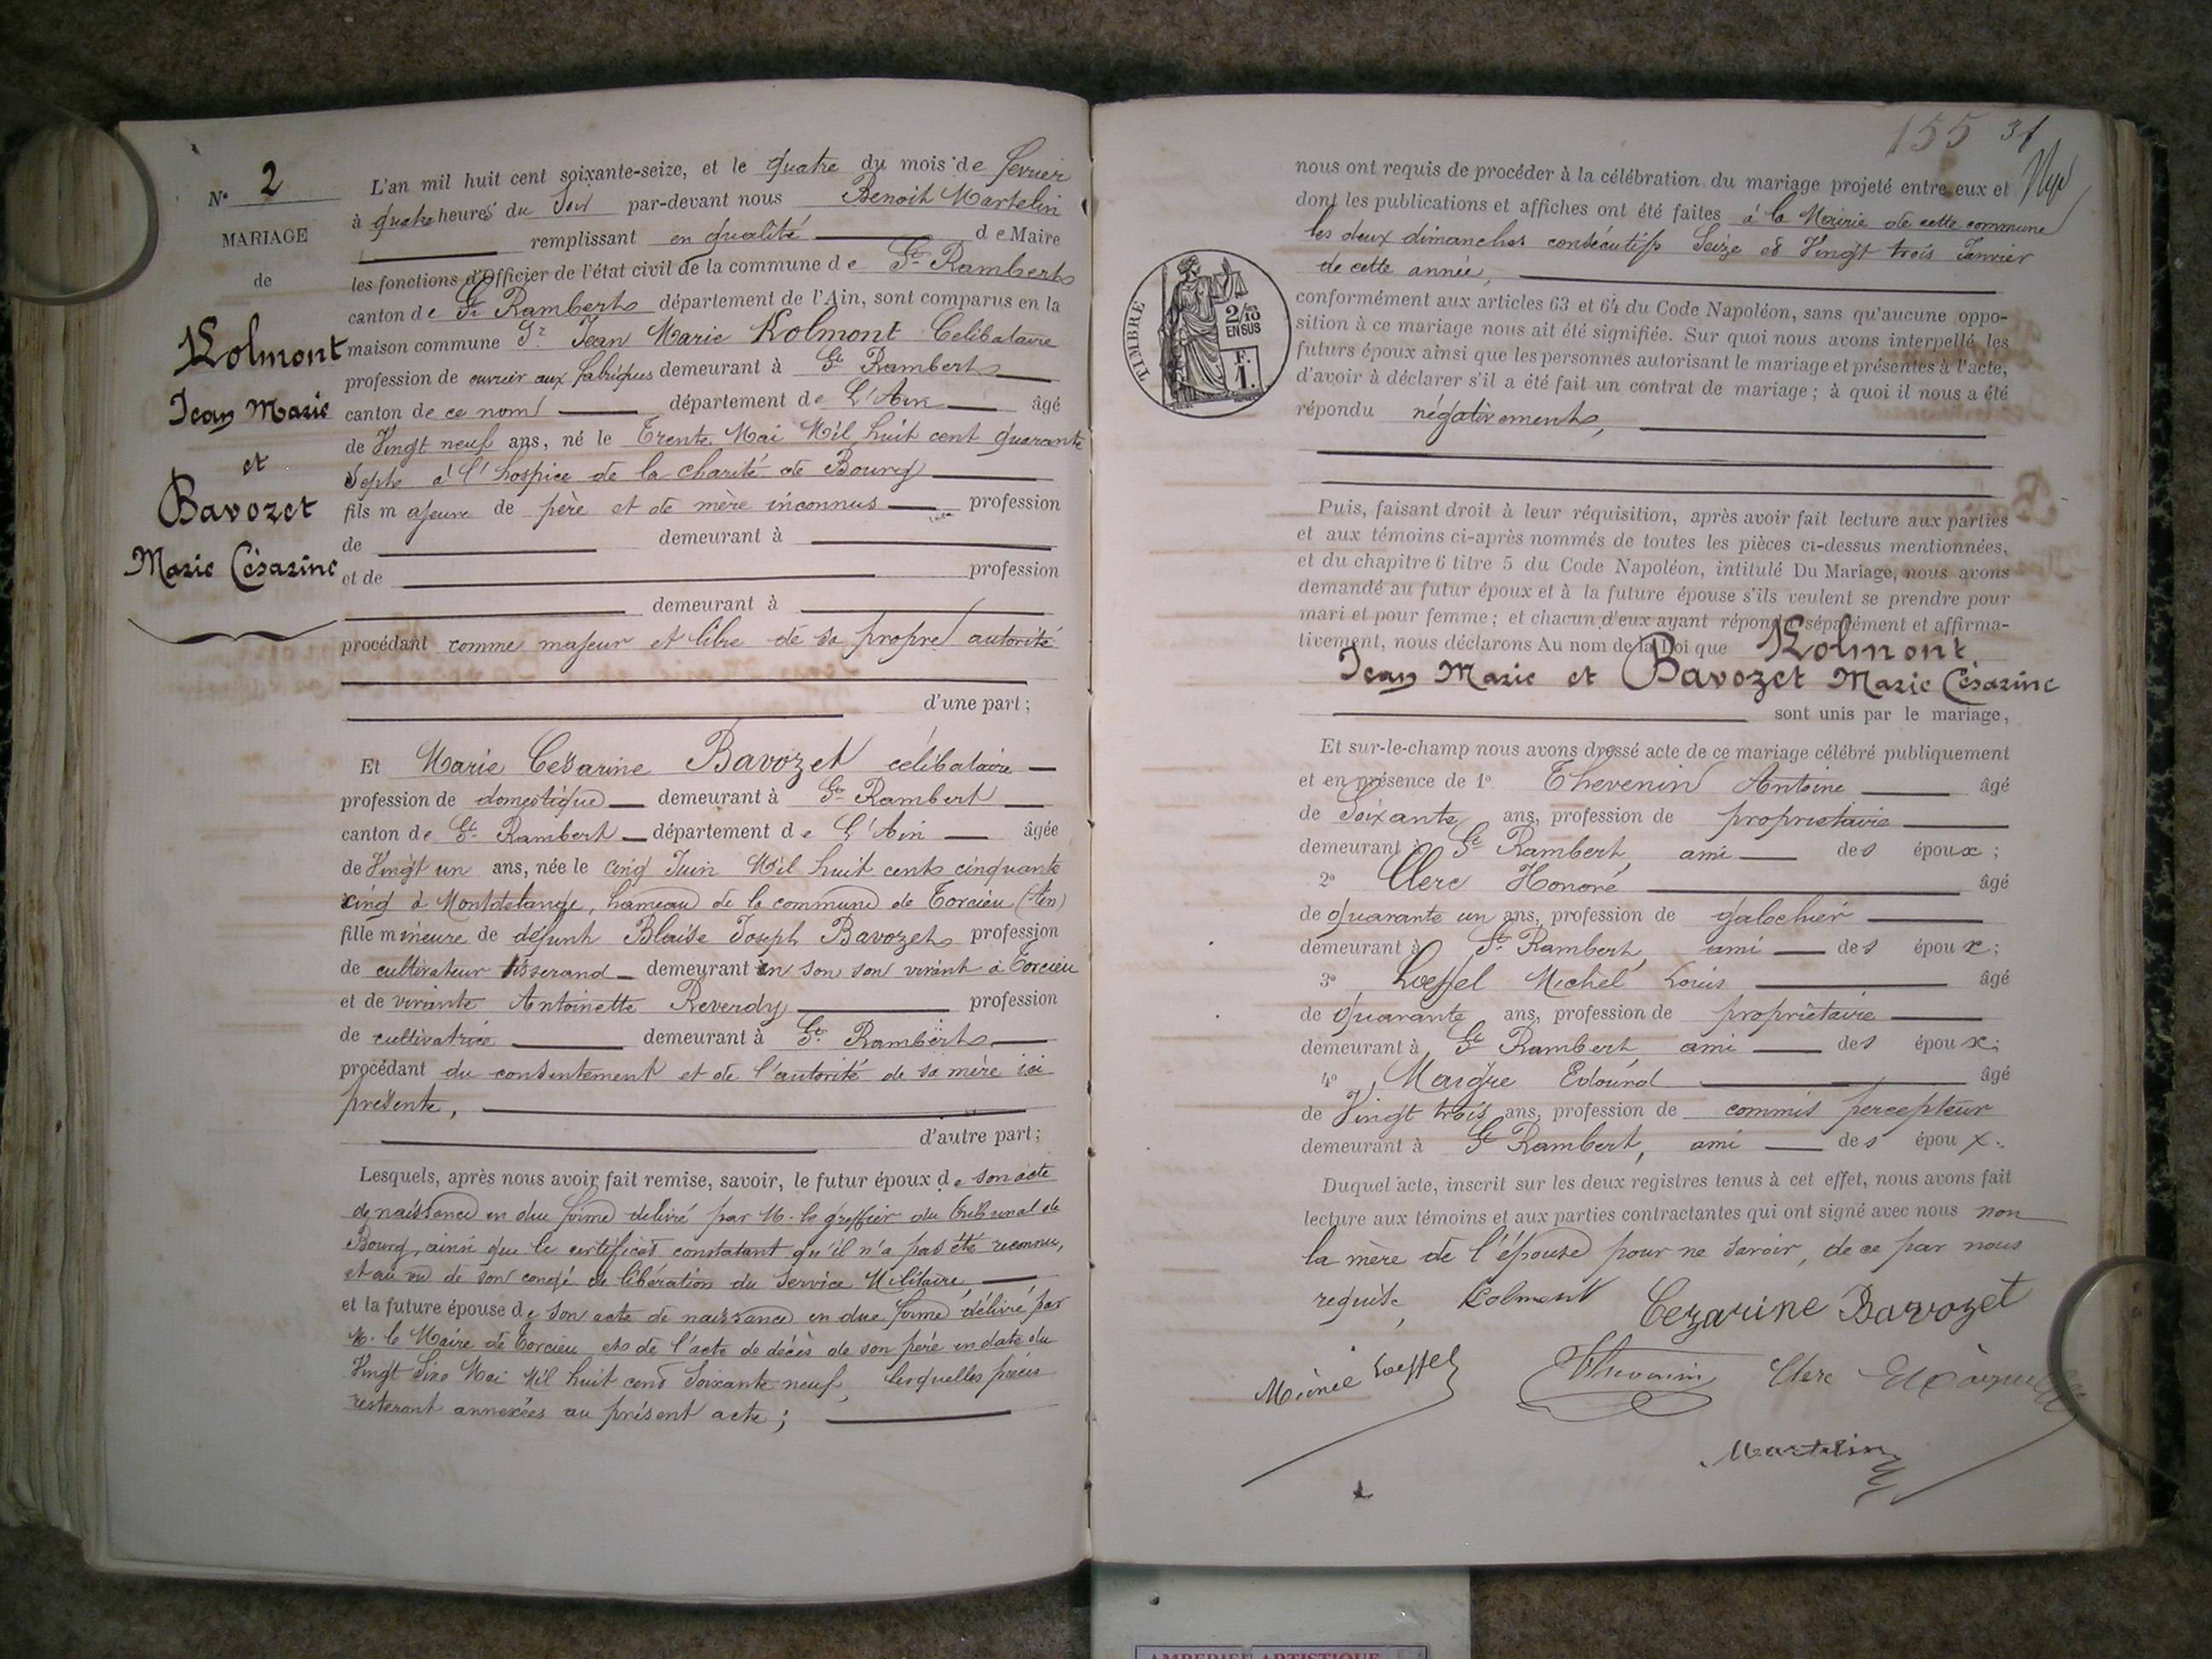 N° 2
MARIAGE
de
Kolmont
Jean Marie
et
Bavozet
Marie Césarine
L'an mil huit cent soixante-seize, et le quatre du mois de fevrier
à quatre heures du Soir par-devant nous Benoit Martelin
remplissant en qualité de Maire
les fonctions d'Officier de l'état civil de la commune de St Rambert
canton de St Rambert département de l'Ain, sont comparus en la
maison commune Sr Jean Marie Kolmont Celibataire
profession de ouvrier aux fabriques demeurant à St Rambert
canton de ce nom département de L'Ain âgé
de Vingt neuf ans, né le Trente Mai Mil huit cent quarante
Sept à l'hospice de la charité de Bourg
fils majeure de père et de mère inconnus profession
de demeurant à
et de profession
demeurant à
procédant comme majeur et libre de sa propre autorité
d'une part;
Et Marie Césarine Bavozet célibataire
profession de domestique demeurant à St Rambert
canton de St Rambert département de L'Ain âgée
de Vingt un ans, née le cinq Juin Mil huit cent cinquante
cinq à Montdelange, hameau de la commune de Torcieu (Ain)
fille mineure de défunt Blaise Joseph Bavozet profession
de cultivateur tisserand demeurant en son son vivant à Torcieu
et de vivante Antoinette Reverdy profession
de cultivatrice demeurant à St Rambert
procédant du consentement et de l'autorité de sa mère ici
présente,
d'autre part;
Lesquels, après nous avoir fait remise, savoir, le futur époux de son acte
de naissance en due forme délivré par M. le greffier du tribunal de
Bourg, ainsi que le certificat constatant qu'il n'a pas été reconnu,
et au vu de son congé de libération du Service Militaire,
et la future épouse de son acte de naissance en due forme délivré par
M. le Maire de Torcieu et de l'acte de décès de son père en date du
Vingt Six Mai Mil huit cent Soixante neuf, lesquelles pièces
resteront annexées au présent acte;
155 31
nous ont requis de procéder à la célébration du mariage projeté entre eux et
dont les publications et affiches ont été faites à la Mairie de cette commune
les deux dimanches consécutifs Seize et Vingt trois Janvier
de cette année,
TIMBRE
2/10
EN SUS
F.
1.
conformément aux articles 63 et 64 du Code Napoléon, sans qu'aucune oppo-
sition à ce mariage nous ait été signifiée. Sur quoi nous avons interpellé les
futurs époux ainsi que les personnes autorisant le mariage et présentes à l'acte,
d'avoir à déclarer s'il a été fait un contrat de mariage; à quoi il nous a été
répondu négativement,
Puis, faisant droit à leur réquisition, après avoir fait lecture aux parties
et aux témoins ci-après nommés de toutes les pièces ci-dessus mentionnées,
et du chapitre 6 titre 5 du Code Napoléon, intitulé Du Mariage, nous avons
demandé au futur époux et à la future épouse s'ils veulent se prendre pour
mari et pour femme; et chacun d'eux ayant répondu séparément et affirma-
tivement, nous déclarons Au nom de la Loi que Kolmont
Jean Marie et Bavozet Marie Césarine
sont unis par le mariage,
Et sur-le-champ nous avons dressé acte de ce mariage célébré publiquement
et en présence de 1° Thevenin Antoine âgé
de Soixante ans, profession de proprietaire
demeurant à St Rambert, ami des époux;
2° Clerc Honoré âgé
de quarante un ans, profession de galochier
demeurant à St Rambert, ami des époux;
3° Loeffel Michel Louis âgé
de Quarante ans, profession de propriétaire
demeurant à St Rambert, ami des époux;
4° Maigre Edouard âgé
de Vingt trois ans, profession de commis percepteur
demeurant à St Rambert, ami des époux.
Duquel acte, inscrit sur les deux registres tenus à cet effet, nous avons fait
lecture aux témoins et aux parties contractantes qui ont signé avec nous non
la mère de l'épouse pour ne savoir, de ce par nous
requise, Kolmont Cezarine Bavozet
Loeffel Thevenin Clerc
Martelin
AMBERIEU ARTISTIQUE